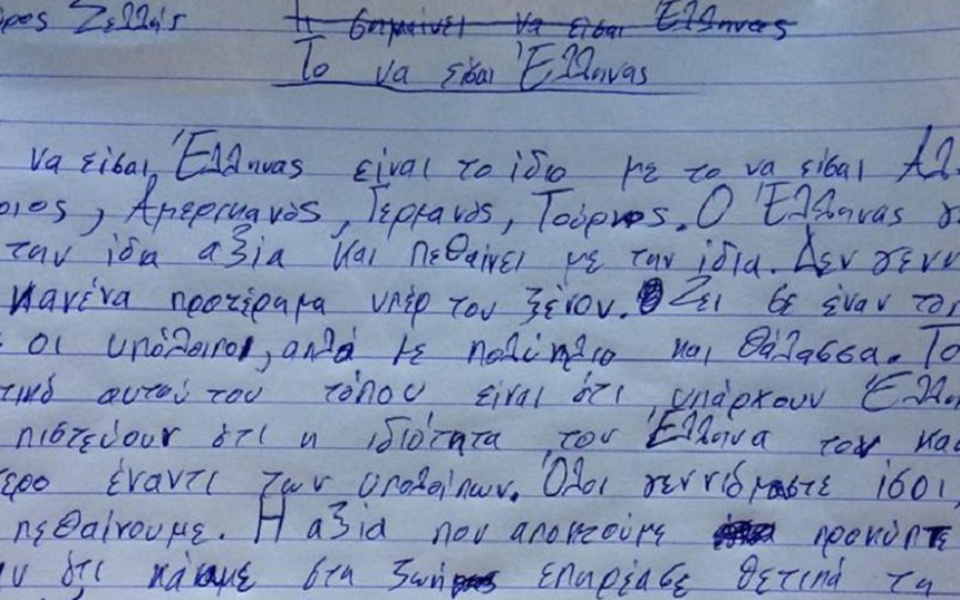 ρος Ζελλής Τι σημαίνει να είσαι Έλληνας
Το να είσαι Έλληνας
να είσαι Έλληνας είναι το ίδιο με το να είσαι Αλ
οιος, Αμερικανός, Γερμανός, Τούρκος. Ο Έλληνας γ
την ίδια αξία και πεθαίνει με την ίδια. Δεν γενν
κανένα προτέραμα υπέρ του ξένου. Ζει σε έναν τό
οι υπόλοιποι, αλλά με πολύ ήλιο και θάλασσα. Το
τικό αυτού του τόπου είναι ότι υπάρχουν Έλλη
πιστεύουν ότι η ιδιότητα του Έλληνα τον κα
ερο έναντι των υπολοίπων. Όλοι γεννιόμαστε ίσοι,
πεθαίνουμε. Η αξία που αποκτούμε προκύπτε
υ ότι κάναμε στη ζωή επηρέασε θετικά τη